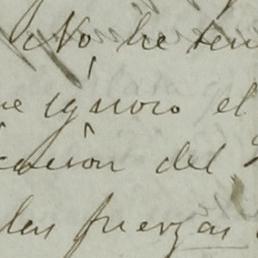 No he ten
e ignoro el
cación del
las fuerzas